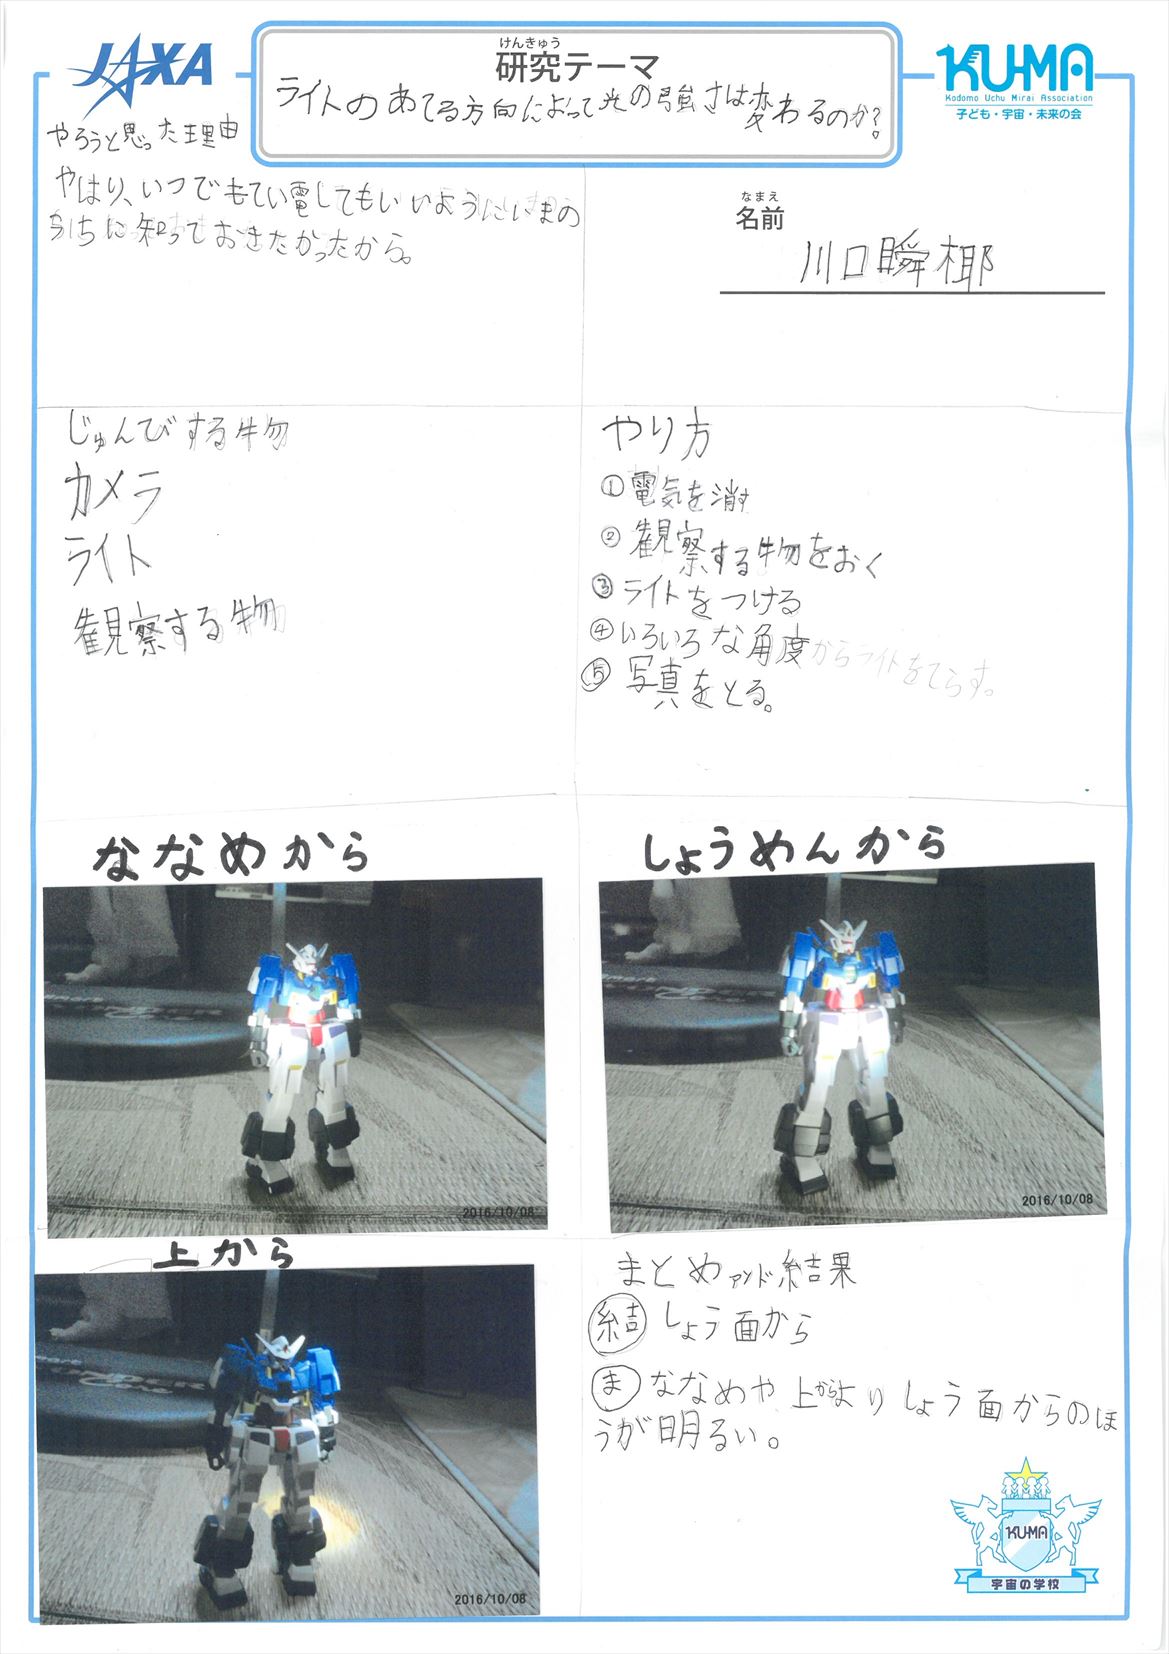 JAXA
けんきゅう
研究テーマ
ライトのあてる方向によって光の強さは変わるのか?
KU-MA
Kodomo Uchu Mirai Association
子ども・宇宙・未来の会
やろうと思った理由
やはり、いつでもてい電してもいいようにいまの
うちに知っておきたかったから。
なまえ
名前
川口瞬椰
じゅんびする物
カメラ
ライト
観察する物
やり方
①電気を消す
②観察する物をおく
③ライトをつける
④いろいろな角度からライトをてらす。
⑤写真をとる。
ななめから
2016/10/08
しょうめんから
2016/10/08
上から
2016/10/08
まとめアンド結果
結 しょう面から
ま ななめや上からよりしょう面からのほ
うが明るい。
KU-MA
宇宙の学校